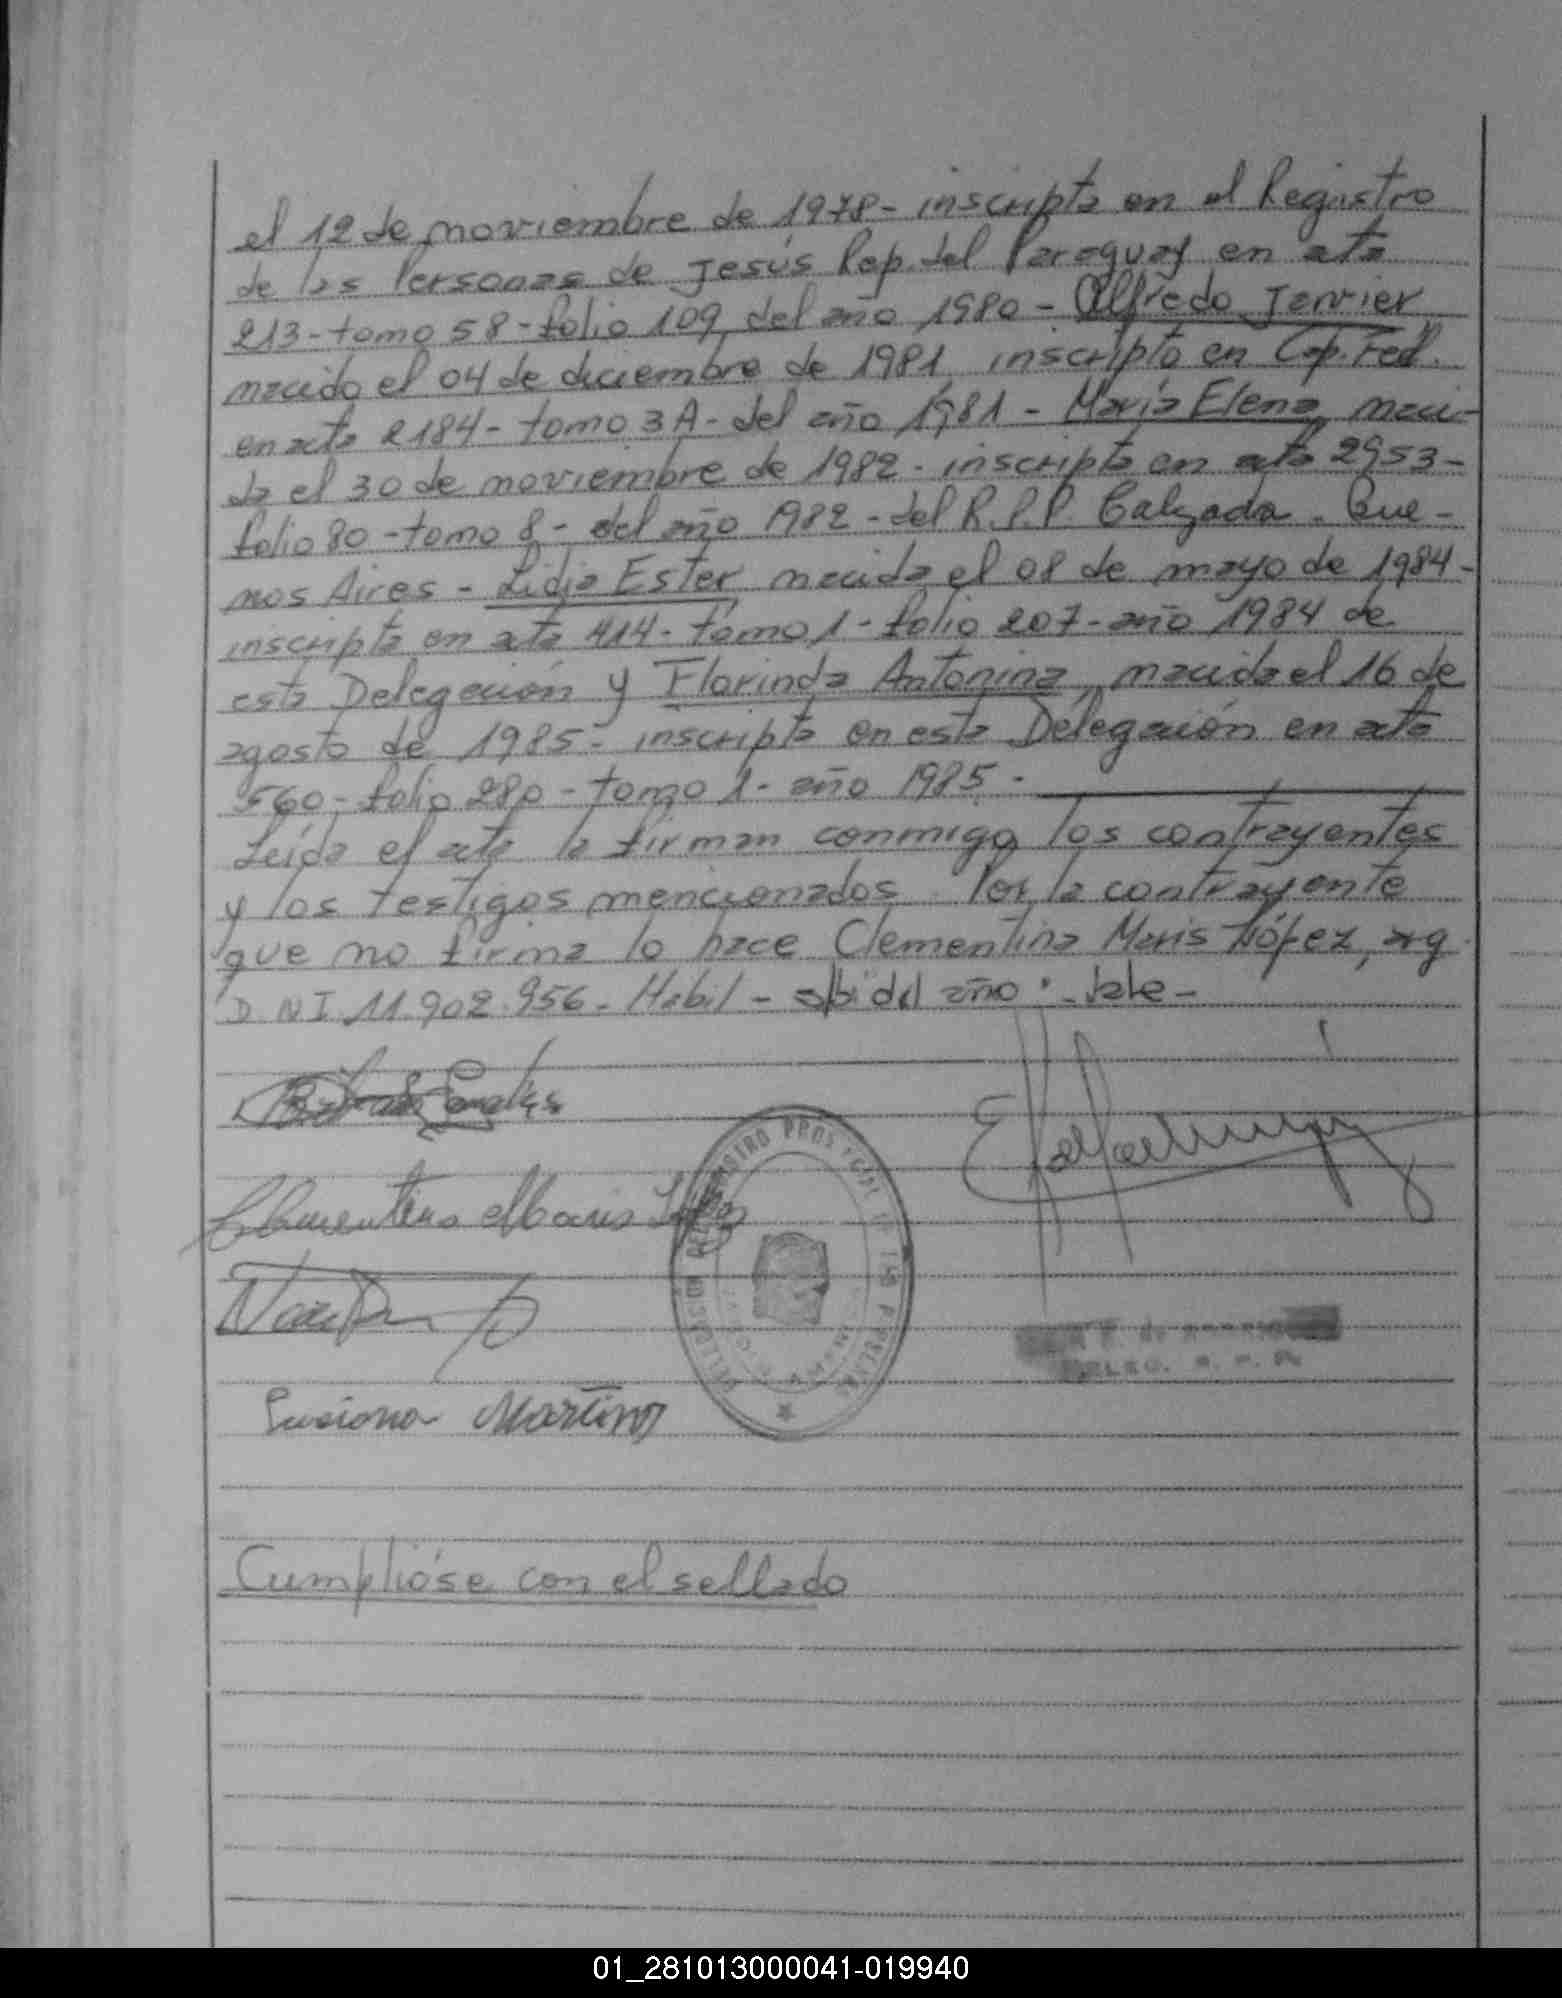 el 12 de noviembre de 1978 - inscripta en el Registro
de las Personas de Jesús Rep. del Paraguay en acta
213 - tomo 58 - folio 109 del año 1980 - Alfredo Javier
nacido el 04 de diciembre de 1981 inscripto en Cap. Fed.
en acta 2184 - tomo 3A - del año 1981 - María Elena, naci-
da el 30 de noviembre de 1982 - inscripta en acta 2953 -
folio 80 - tomo 8 - del año 1982 - del R.P.P. Calzada - Bue -
nos Aires - Lidia Ester, nacida el 08 de mayo de 1984 -
inscripta en acta 414 - tomo 1 - folio 207 - año 1984 de
esta Delegación y Florinda Antonina, nacida el 16 de
agosto de 1985 - inscripta en esta Delegación en acta
560 - folio 280 - tomo 1 - año 1985 -
Leída el acta la firman conmigo los contrayentes
y los testigos mencionados. Por la contrayente
que no firma lo hace Clementina Maris López, arg.
D.N.I. 11.902.956 - Habil - del año - Vale -
Clementina Maris López
Martinez
REGISTRO PROVINCIAL DE LAS PERSONAS
DELEG. R. P. P.
Cumplióse con el sellado
01_281013000041-019940